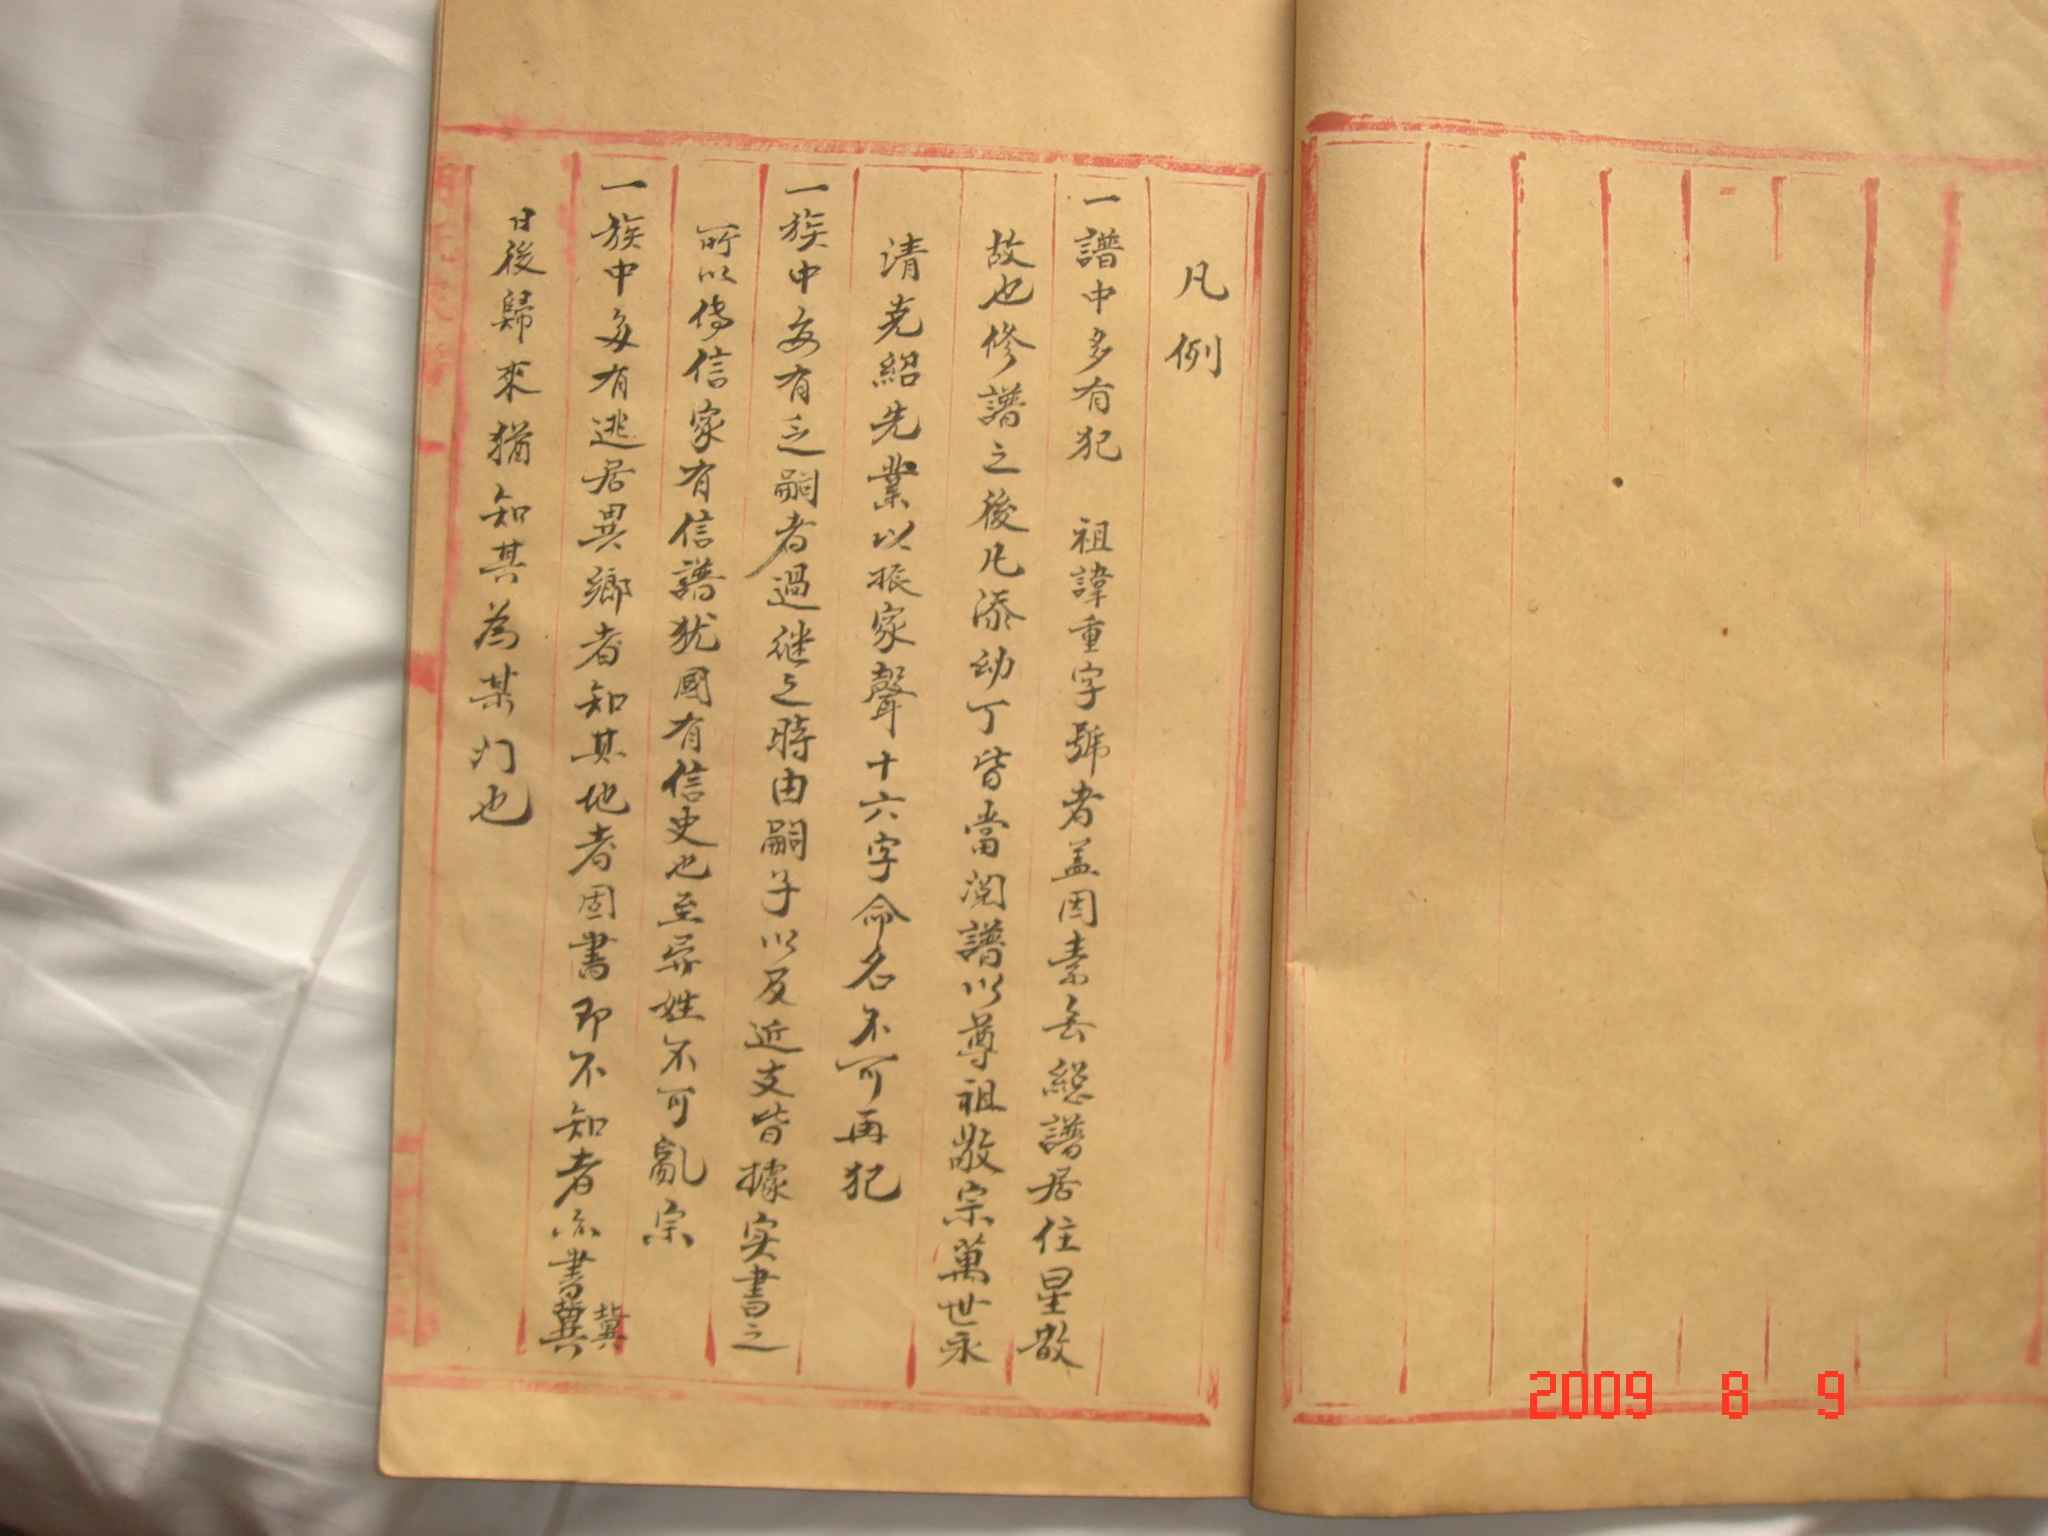 凡例
一譜中多有犯　祖諱重字號者盖因素無總譜居住星散
故也修譜之後凡添幼丁皆當閱譜以尊祖敬宗萬世永
清克紹先業以振家聲十六字命名不可再犯
一族中每有乏嗣者過继之時由嗣子以及近支皆據实書之
所以傳信家有信譜犹國有信史也至异姓不可亂宗
一族中多有逃居異鄉者知其地者固書即不知者亦書冀
冀
日後歸來猶知其為某门也
2009 8 9